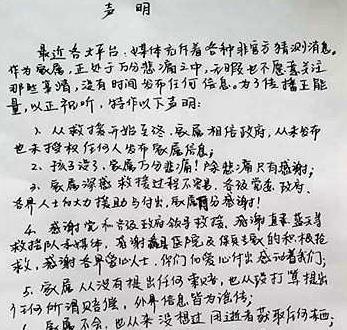 声明
最近各大平台、媒体充斥着各种非官方猜测消息。
作为家属，正处于万分悲痛之中，无暇也不愿意关注
那些事情，没有时间发布任何信息。为了传播正能
量，以正视听，特作以下声明：
1、从救援开始至终，家属相信政府，从未发布
也未授权任何人发布家属信息；
2、孩子没了，家属万分悲痛！除悲痛只有感谢；
3、家属深感救援过程不容易，各级党委、政府、
各界人士和大力援助与付出，家属万分感谢！
4、感谢党和各级政府领导救援，感谢 蓝天
救援队和媒体，感谢 县医院及 的积极抢
救，感谢各界爱心人士，你们的爱心付出感动着我们；
5、家属从没有提出任何要求，也从没打算提出
任何所谓赔偿，外界信息皆为谣传；
6、家属不会，也从来没想过因逝者获取任何东西；